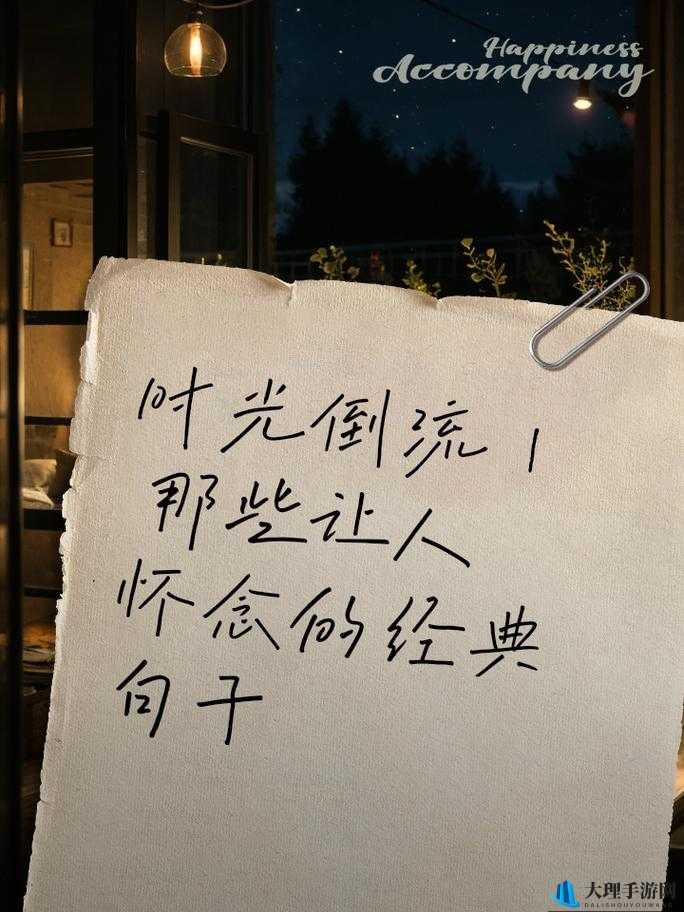 Happiness
Accompany
时光倒流，
那些让人
怀念的经典
句子
大理手游网
DALISHOUYOUWANG